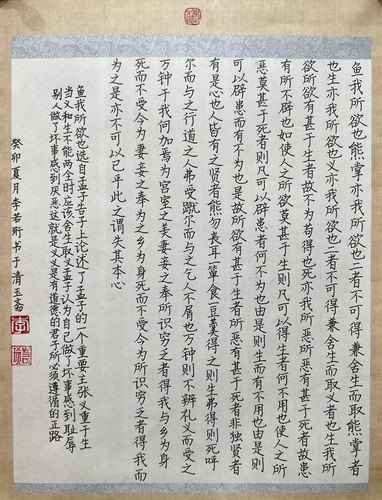 鱼我所欲也熊掌亦我所欲也二者不可得兼舍鱼而取熊掌者
也生亦我所欲也义亦我所欲也二者不可得兼舍生而取义者也生我所
欲所欲有甚于生者故不为苟得也死亦我所恶所恶有甚于死者故患
有所不辟也如使人之所欲莫甚于生则凡可以得生者何不用也使人之所
恶莫甚于死者则凡可以辟患者何不为也由是则生而有不用也由是则
可以辟患而有不为也是故所欲有甚于生者所恶有甚于死者非独贤者
有是心也人皆有之贤者能勿丧耳一箪食一豆羹得之则生弗得则死呼
尔而与之行道之人弗受蹴尔而与之乞人不屑也万钟则不辨礼义而受之
万钟于我何加焉为宫室之美妻妾之奉所识穷乏者得我与乡为身
死而不受今为妻妾之奉为之乡为身死而不受今为所识穷乏者得我而
为之是亦不可以已乎此之谓失其本心
鱼我所欲也选自孟子告子上论述了孟子的一个重要主张义重于生
当义和生不能两全时应该舍生取义孟子认为自己做了坏事感到耻辱
别人做了坏事感到厌恶这就是义义是有道德的君子所必须遵循的正路
癸卯夏月李若珩书于清玉斋